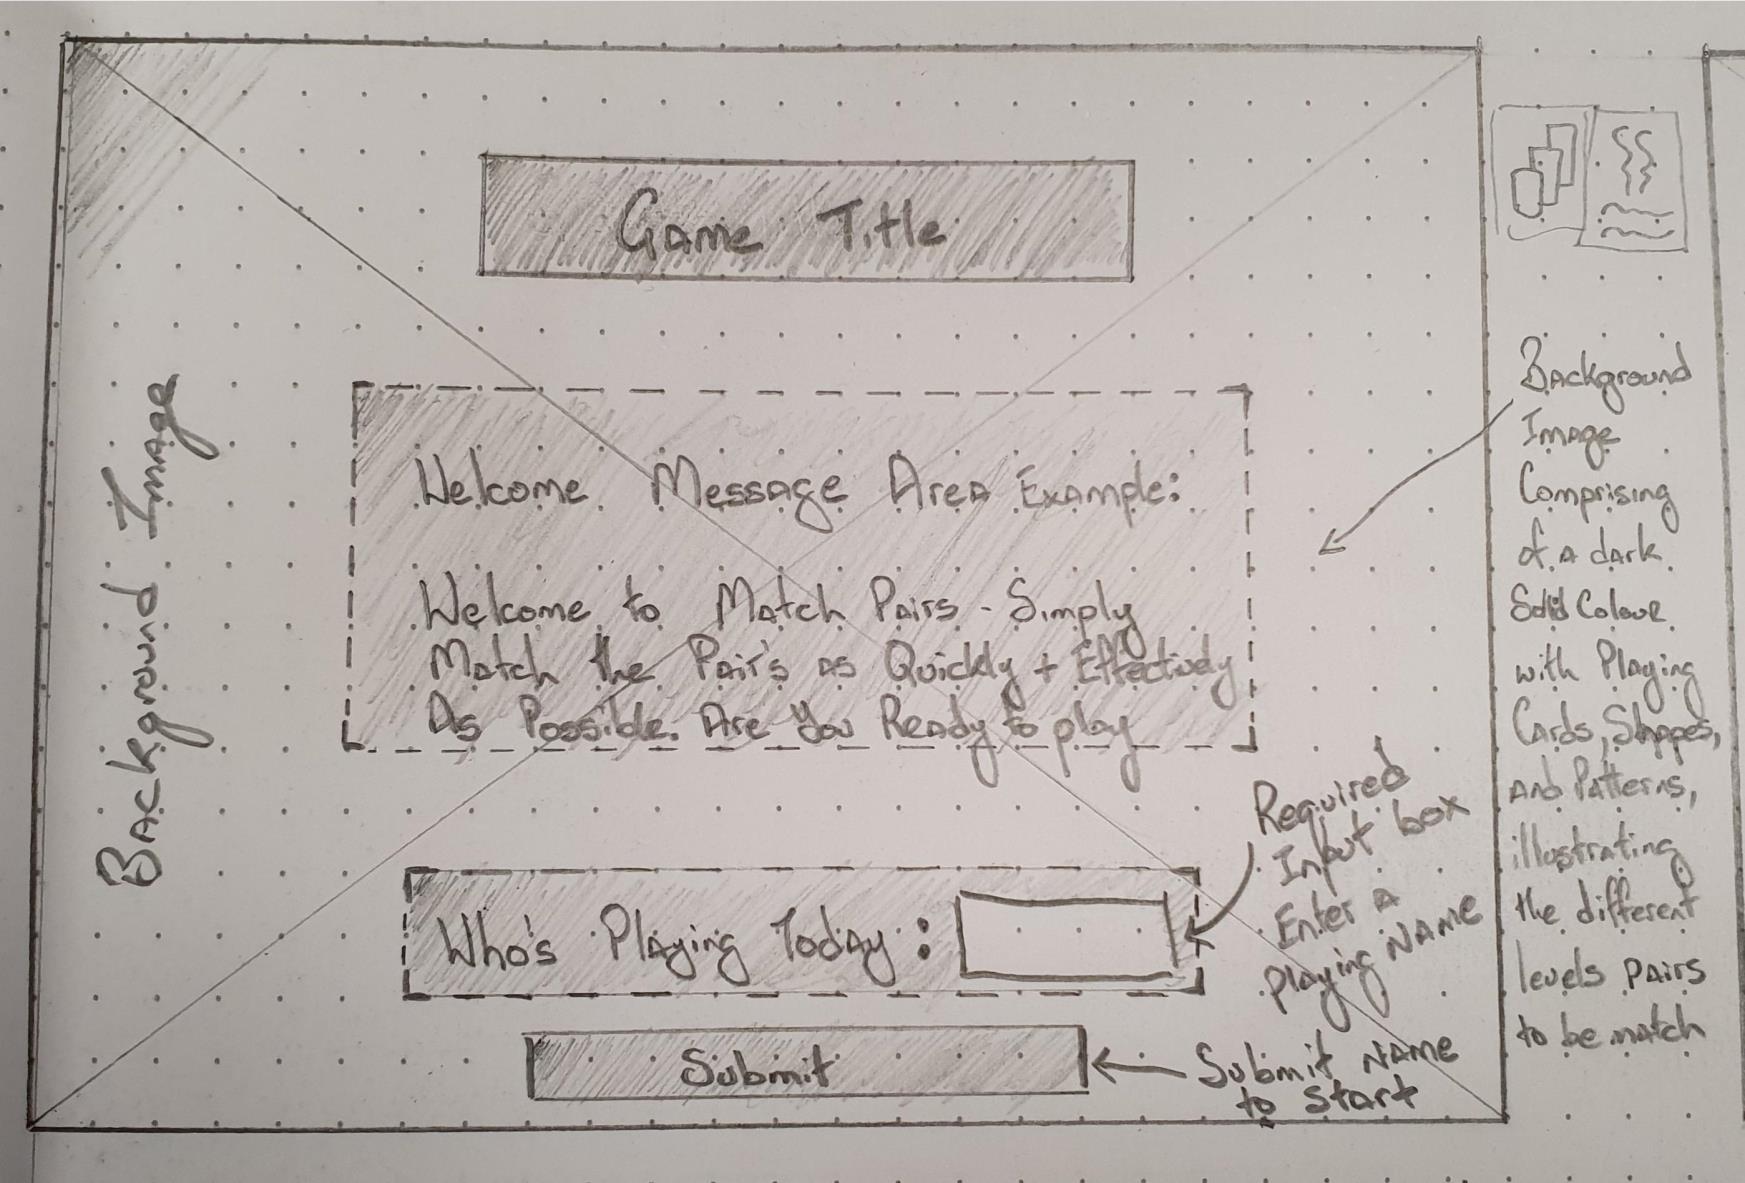 Game Title
Background Image
Welcome Message Area Example:
Welcome to Match Pairs - Simply
Match the Pair's as Quickly + Effectively
As Possible. Are You Ready to play
Who's Playing Today :
Submit
Required
Input box
Enter a
playing Name
Submit Name
to start
Background
Image
Comprising
of a dark
Solid Colour
with Playing
Cards, Shapes,
and Patterns,
illustrating
the different
levels pairs
to be match